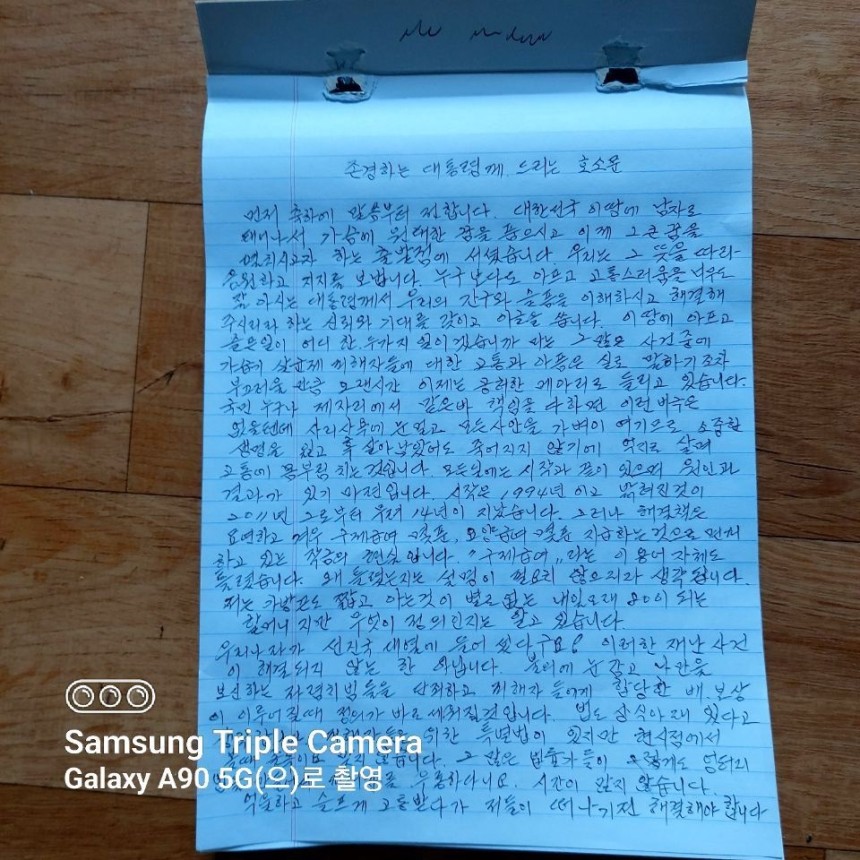 존경하는 대통령께 드리는 호소문
먼저 축하에 말씀부터 전합니다. 대한민국 이땅에 남자로
태어나서 가슴에 원대한 꿈을 품으시고 이제 그 큰 꿈을
펼치시고자 하는 출발점에 서셨습니다 우리는 그 뜻을 따라
응원하고 지지를 보냅니다. 누구보다도 아프고 고통스러움을 너무도
잘 아시는 대통령께서 우리의 슬픔을 이해하시고 해결해
주시리라 하는 신뢰와 기대를 갖이고 이글을 씁니다. 이 땅에 아프고
슬은일이 어디 한 두가지 일이겠습니까 그 많은 사건중에
가습기 살균제 피해자들에 대한 고통과 아픔은 실로 말하기조차
부끄러울 만큼 오랜시간 이제는 공허한 메아리로 들리고 있습니다.
국민 누구나 제자리에서 같은바 책임을 다하면 이런 비극은
없을텐데 사리사욕에 눈멀고 모든사안을 가벼이 여기므로 소중한
생명을 잃고 혹 살아남았어도 죽어지지 않기에 억지로 살며
고통에 몸부림 치는것입니다. 모든일에는 시작과 끝이 있으며 원인과
결과가 있기 마련입니다. 시작은 1994년 이고 밝혀진것이
2011년 그로부터 무려 14년이 지났습니다. 그러나 해결책은
요연하고 겨우 구제급여 몇푼, 요양급여 몇푼 지급하는것으로
하고 있는 작금의 현실입니다. "구제급여" 라는 이 용어 자체도
틀렸습니다. 왜 틀렸는지는 설명이 필요치 않으리라 생각됩니다.
저는 가방끈도 짧고 아는것이 별로없는 내일모래 80이 되는
할머니 지만 무엇이 정의인지는 알고 있습니다
우리나라가 선진국 대열에 들어 있다구요? 이러한 재난 사건
이 해결되지 않는 한 아닙니다. 눈감고
보신하는 자들을 단죄하고 피해자 들에게 합당한 배.보상
이 이루어질때 정의가 바로 세워질것입니다. 법도 상식아래 있다고
위한 특별법이 있지만 현시점에서
그 많은 법률가들이 이렇게도 엉터리
시간이 많지 않습니다.
억울하고 슬프게 고통받다가 저들이 떠나기전 해결해야 합니다
Samsung Triple Camera
Galaxy A90 5G(으)로 촬영